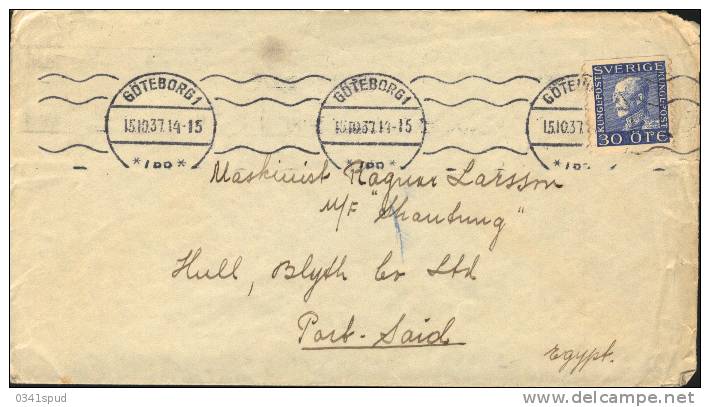 GÖTEBORG 1
15.10.37.14-15
* LBR *
GÖTEBORG 1
15.10.37.14-15
* LBR *
GÖTE
15.10.37
* LBR
SVERIGE
KUNGL.POST
KUNGL.POST
30 ÖRE
Maskinist Ragnar Larsson
M/F "Shantung"
Hull, Blyth Co Ltd
Port-Said
Egypt.
0341spud
delcampe.net